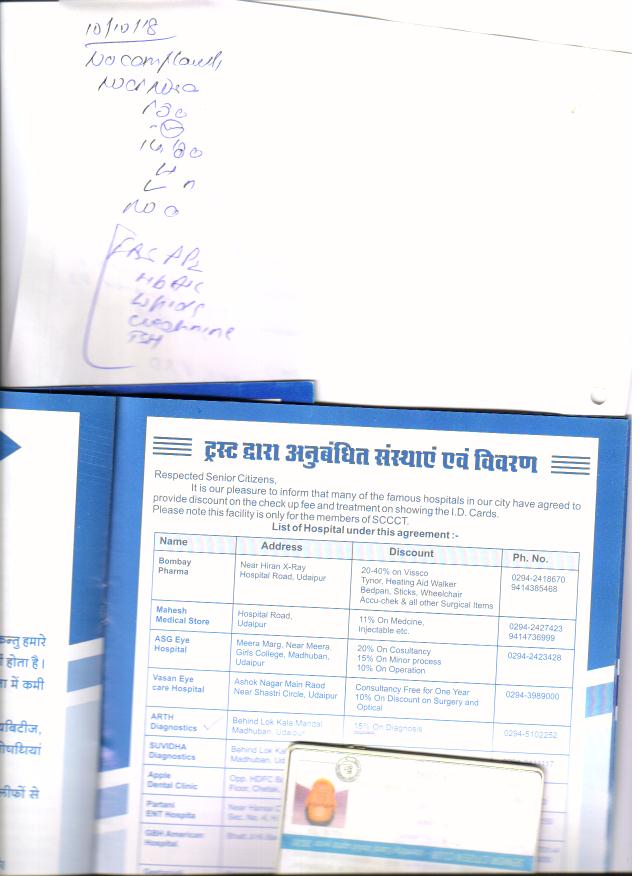 10/10/18
No complaints
130
FBS PP2
HbA1c
Lipids
Creatinine
TSH
ट्रस्ट द्वारा अनुबंधित संस्थाएं एवं विवरण
Respected Senior Citizens,
It is our pleasure to inform that many of the famous hospitals in our city have agreed to
provide discount on the check up fee and treatment on showing the I.D. Cards.
Please note this facility is only for the members of SCCCT.
List of Hospital under this agreement :-
Name Address Discount Ph. No.
Bombay Pharma
Near Hiran X-Ray
Hospital Road, Udaipur
20-40% on Vissco
Tynor, Heating Aid Walker
Bedpan, Sticks, Wheelchair
Accu-chek & all other Surgical Items
0294-2418670
9414385468
Mahesh
Medical Store
Hospital Road,
Udaipur
11% On Medcine,
Injectable etc.
0294-2427423
9414736999
ASG Eye
Hospital
Meera Marg, Near Meera,
Girls College, Madhuban,
Udaipur
20% On Cosultancy
15% On Minor process
10% On Operation
0294-2423428
Vasan Eye
care Hospital
Ashok Nagar Main Raod
Near Shastri Circle, Udaipur
Consultancy Free for One Year
10% On Discount on Surgery and
Optical
0294-3989000
ARTH
Diagnostics
Behind Lok Kala Mandal
Madhuban, Udaipur
15% On Diagnosis
0294-5102252
SUVIDHA
Diagnostics
Behind Lok Ka
Madhuban, Ud
Apple
Dental Clinic
Opp. HDFC B
Floor, Chetak
Partani
ENT Hospita
Near
Sec. No. 4, H
GBH American
Hospital
न्तु हमारे
होता है।
ा में कमी
यबिटीज,
षधियां
लीफों से